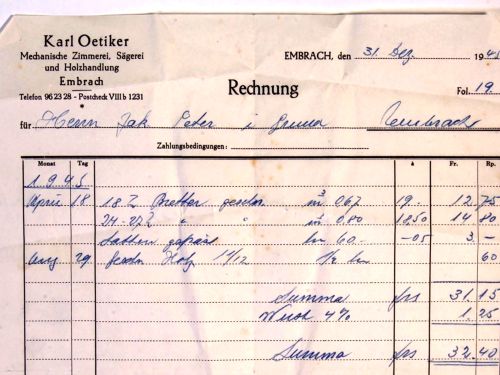 Karl Oetiker
Mechanische Zimmerei, Sägerei
und Holzhandlung
Embrach
Telefon 96 23 28 - Postcheck VIII b 1231
EMBRACH, den 31. Dez. 1945
Rechnung
Fol. 19
für Herrn Jak. Peter i. Grund Embrach
Zahlungsbedingungen:
Monat Tag à Fr. Rp.
1945
April 18 18 Z Bretter m³ 0.67 19.- 12.75
24-27 Z " " m³ 0.80 18.50 14.80
Latten gefräst lm 60.- -.05 3.-
Aug 29 Holz 14/12 lm 60
Summa frs 31.15
Wust 4% 1.25
Summa frs 32.40